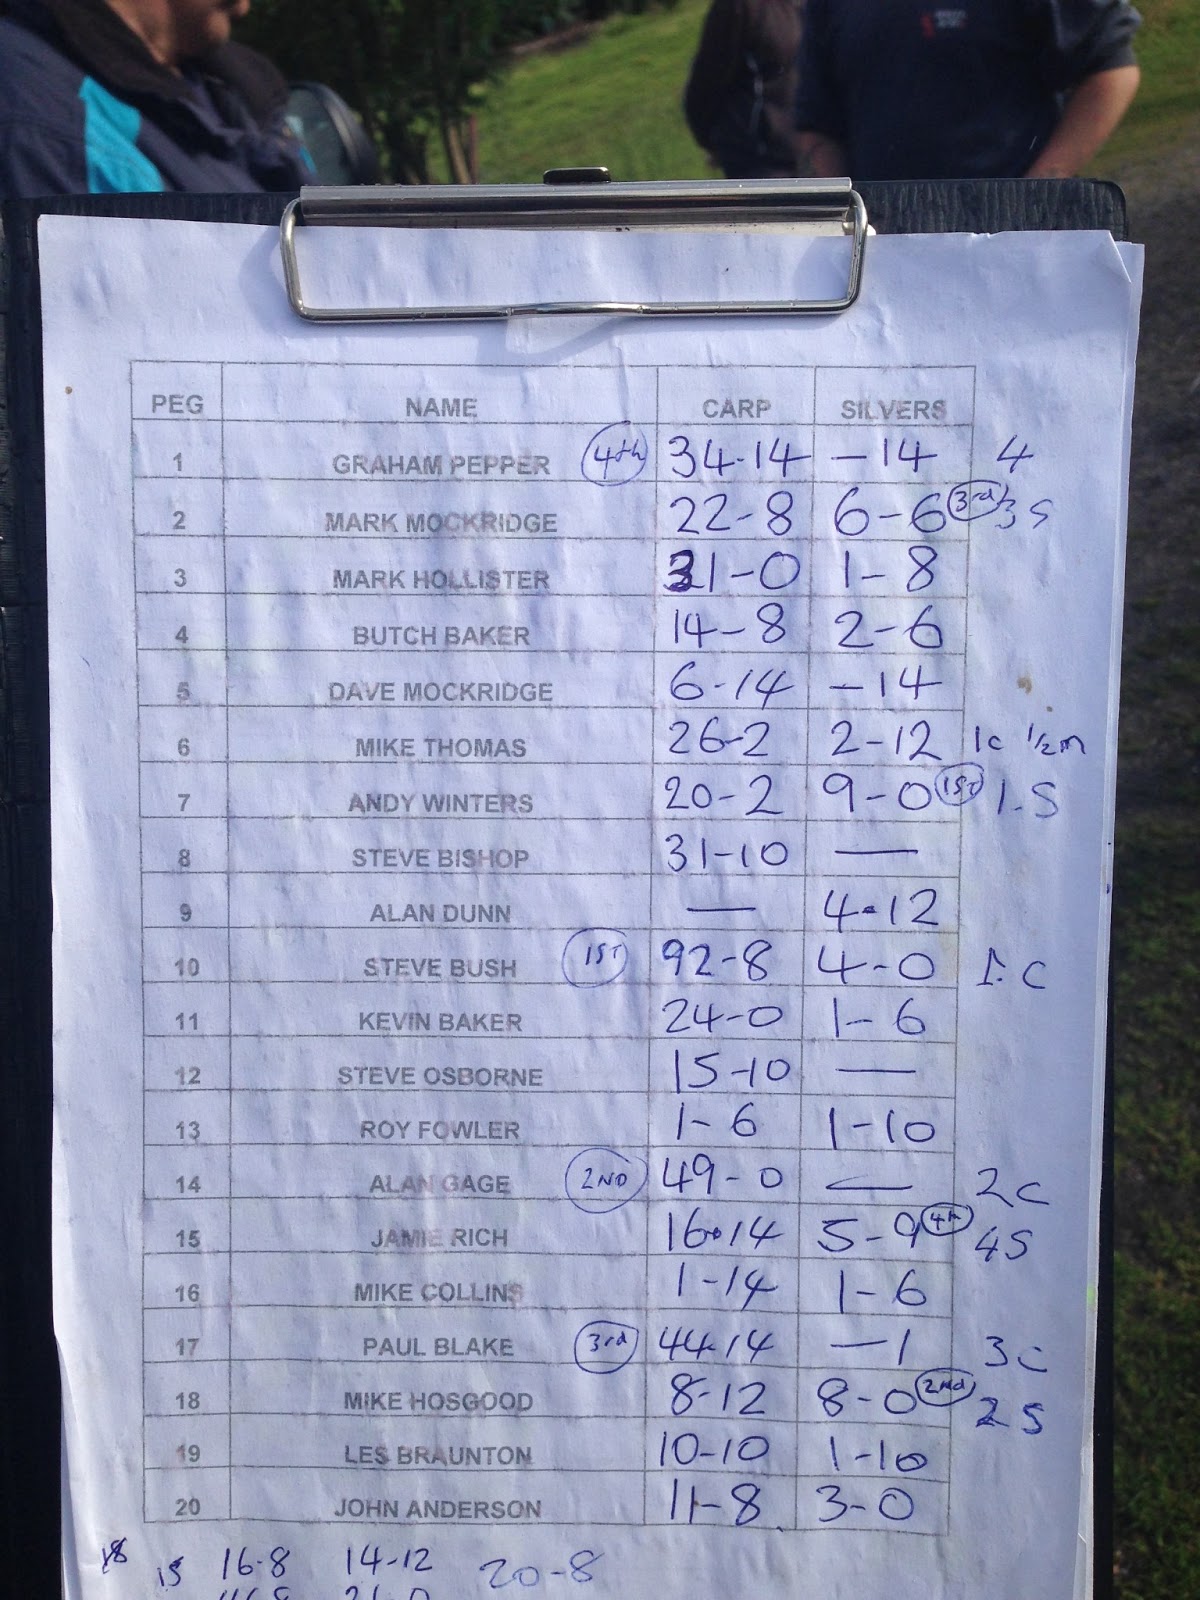 PEG NAME CARP SILVERS
1 GRAHAM PEPPER 4th 34-14 -14 4
2 MARK MOCKRIDGE 22-8 6-6 3rd 3S
3 MARK HOLLISTER 31-0 1-8
4 BUTCH BAKER 14-8 2-6
5 DAVE MOCKRIDGE 6-14 -14
6 MIKE THOMAS 26-2 2-12 1c 1/2m
7 ANDY WINTERS 20-2 9-0 1ST 1-S
8 STEVE BISHOP 31-10 —
9 ALAN DUNN — 4-12
10 STEVE BUSH 1ST 92-8 4-0 1-C
11 KEVIN BAKER 24-0 1-6
12 STEVE OSBORNE 15-10 —
13 ROY FOWLER 1-6 1-10
14 ALAN GAGE 2ND 49-0 — 2C
15 JAMIE RICH 16-14 5-9 4th 4S
16 MIKE COLLINS 1-14 1-6
17 PAUL BLAKE 3rd 44-14 -1 3C
18 MIKE HOSGOOD 8-12 8-0 2nd 2S
19 LES BRAUNTON 10-10 1-10
20 JOHN ANDERSON 11-8 3-0
18 15 16-8 14-12 20-8